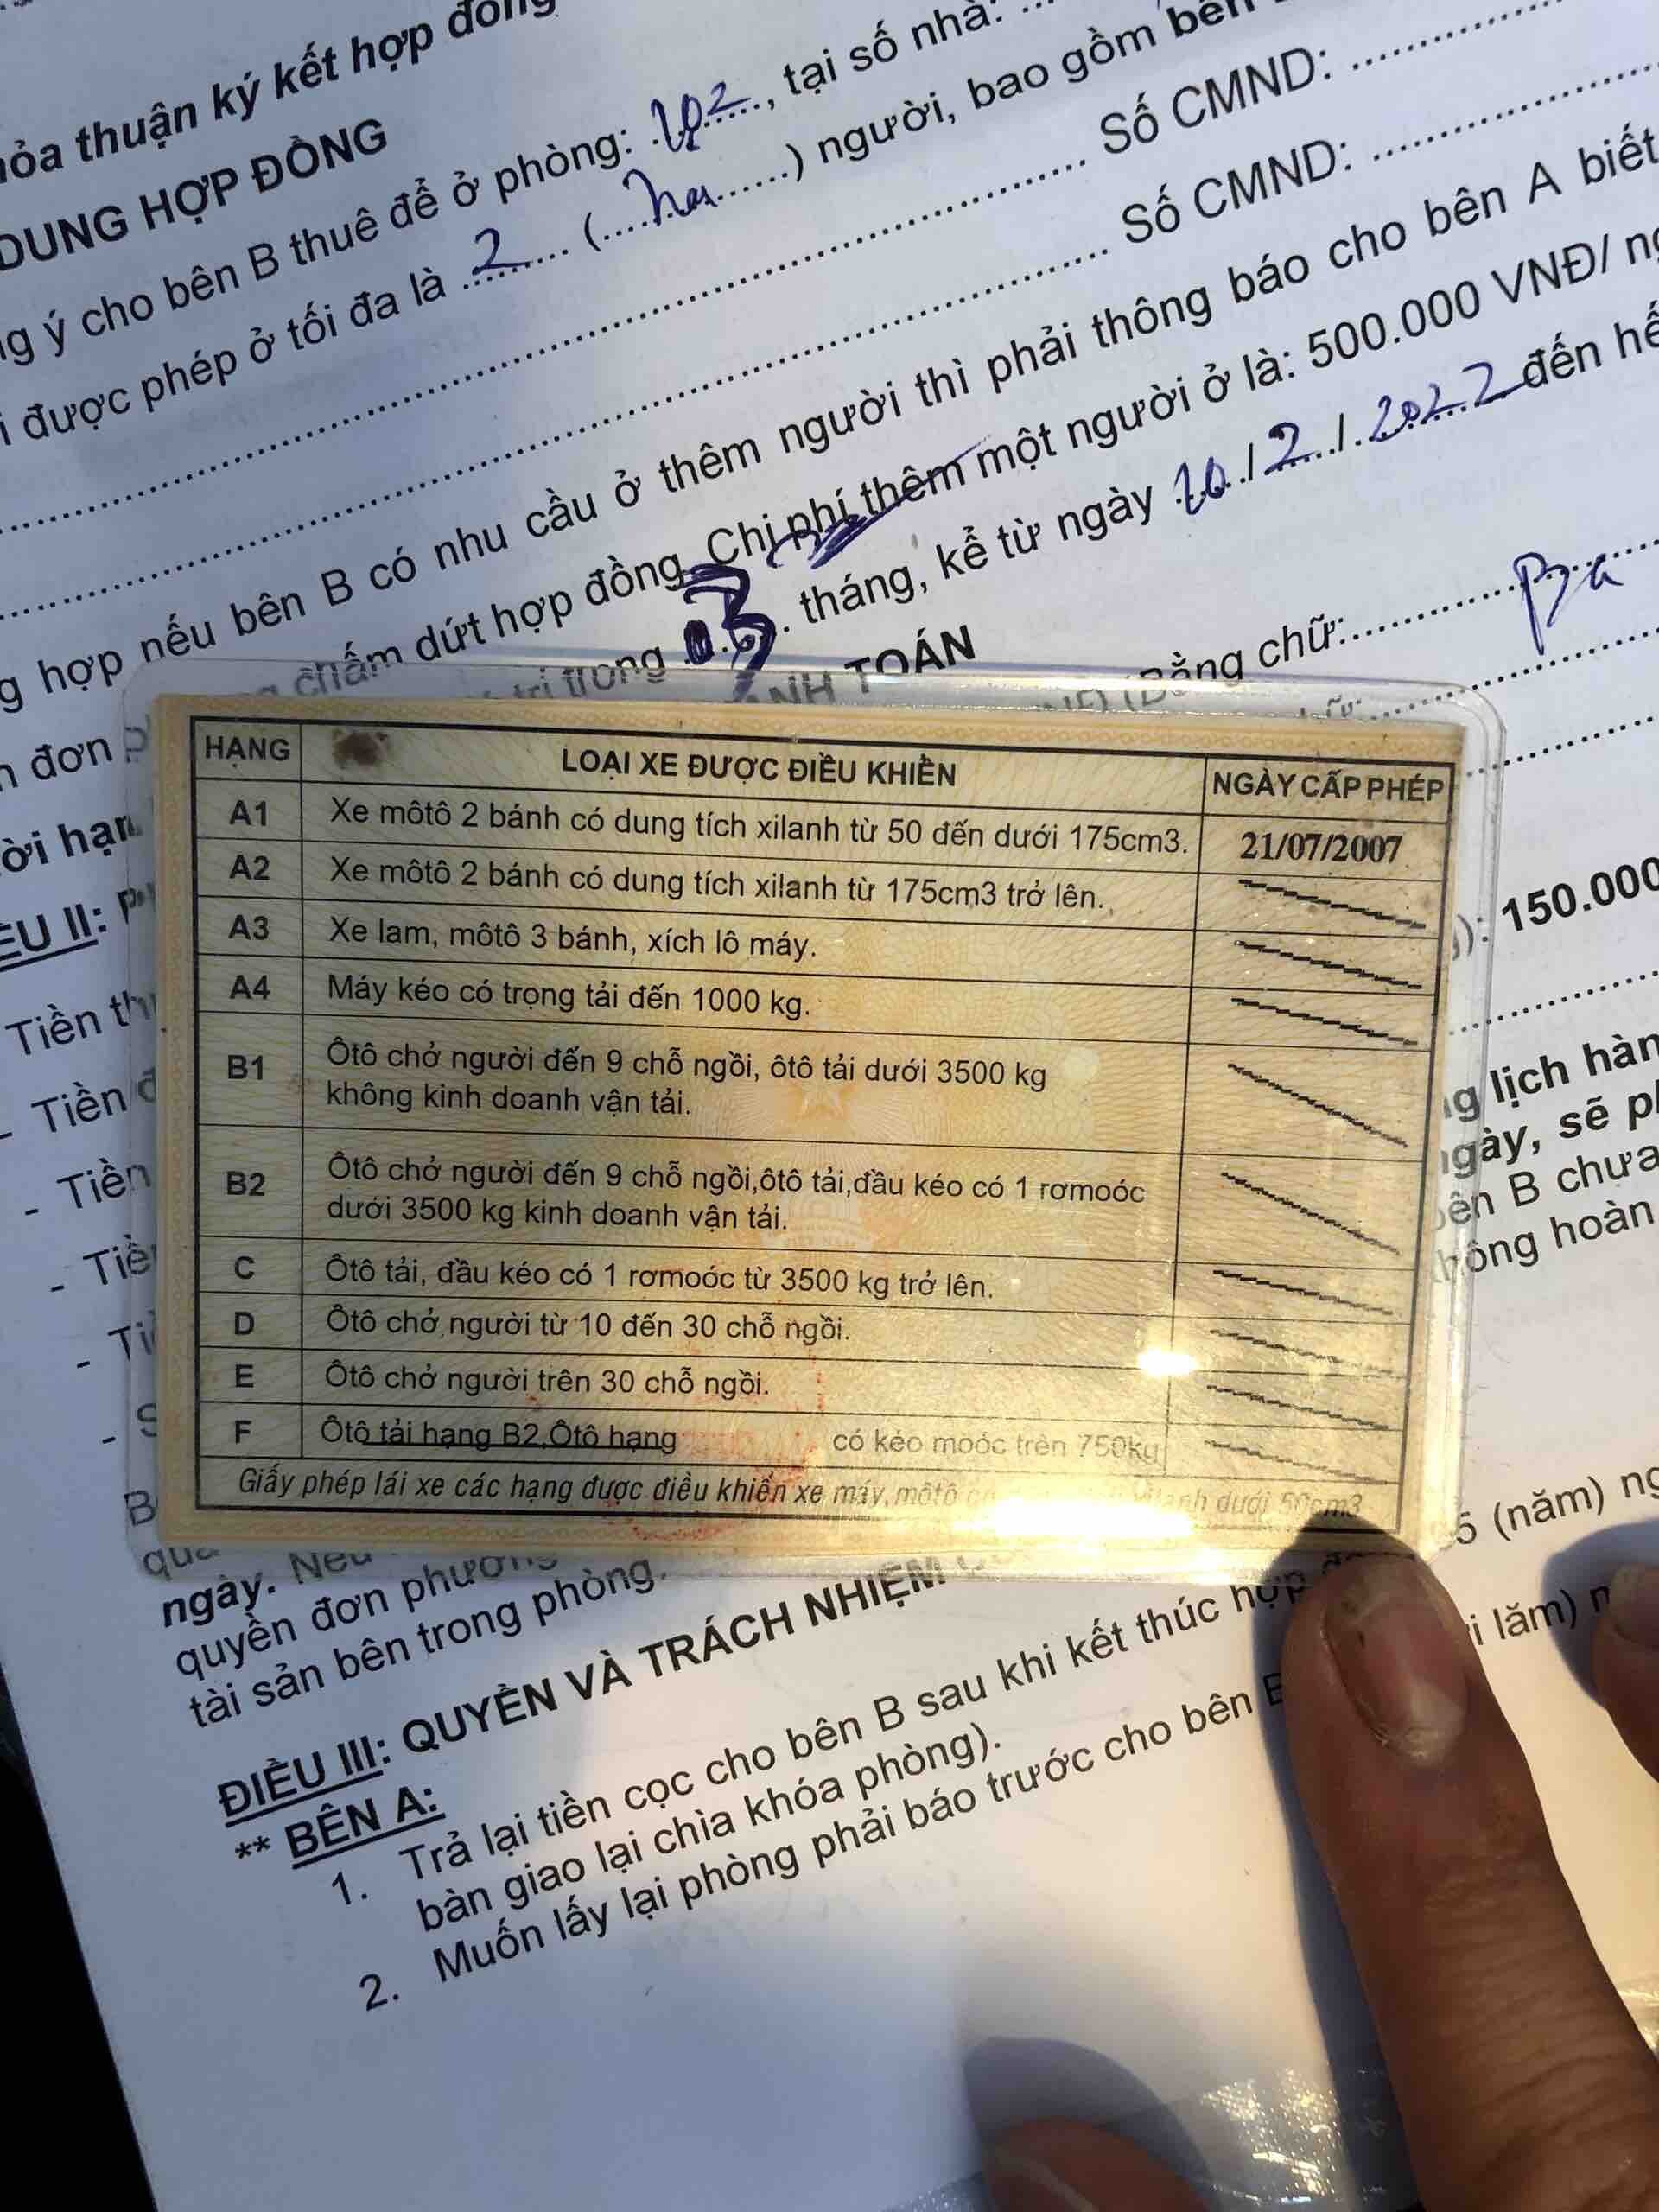 hỏa thuận ký kết hợp đồng
DUNG HỢP ĐỒNG
ng ý cho bên B thuê để ở phòng: 102, tại số nhà:
i được phép ở tối đa là 2 (hai) người, bao gồm bên
Số CMND:
Số CMND:
g hợp nếu bên B có nhu cầu ở thêm người thì phải thông báo cho bên A biết
n đơn chấm dứt hợp đồng. Chi phí thêm một người ở là: 500.000 VNĐ/
ời hạn trị trong 03 tháng, kể từ ngày 10/2/2022 đến hế
ỀU II: ANH TOÁN
Tiền th (Bằng chữ: Ba
- Tiền đ
- Tiền : 150.000
- Tiề
- Ti
- S
HẠNG LOẠI XE ĐƯỢC ĐIỀU KHIỂN NGÀY CẤP PHÉP
A1 Xe môtô 2 bánh có dung tích xilanh từ 50 đến dưới 175cm3. 21/07/2007
A2 Xe môtô 2 bánh có dung tích xilanh từ 175cm3 trở lên.
A3 Xe lam, môtô 3 bánh, xích lô máy.
A4 Máy kéo có trọng tải đến 1000 kg.
B1 Ôtô chở người đến 9 chỗ ngồi, ôtô tải dưới 3500 kg
không kinh doanh vận tải.
B2 Ôtô chở người đến 9 chỗ ngồi,ôtô tải,đầu kéo có 1 rơmoóc
dưới 3500 kg kinh doanh vận tải.
C Ôtô tải, đầu kéo có 1 rơmoóc từ 3500 kg trở lên.
D Ôtô chở người từ 10 đến 30 chỗ ngồi.
E Ôtô chở người trên 30 chỗ ngồi.
F Ôtô tải hạng B2,Ôtô hạng có kéo moóc trên 750kg
Giấy phép lái xe các hạng được điều khiển xe máy, môtô dưới 50cm3
ng lịch hàn
ngày, sẽ ph
bên B chưa
không hoàn
5 (năm) ng
ngày. Nếu
quyền đơn phương
tài sản bên trong phòng.
ĐIỀU III: QUYỀN VÀ TRÁCH NHIỆM
** BÊN A:
1. Trả lại tiền cọc cho bên B sau khi kết thúc hợp
bàn giao lại chìa khóa phòng).
2. Muốn lấy lại phòng phải báo trước cho bên B lăm)